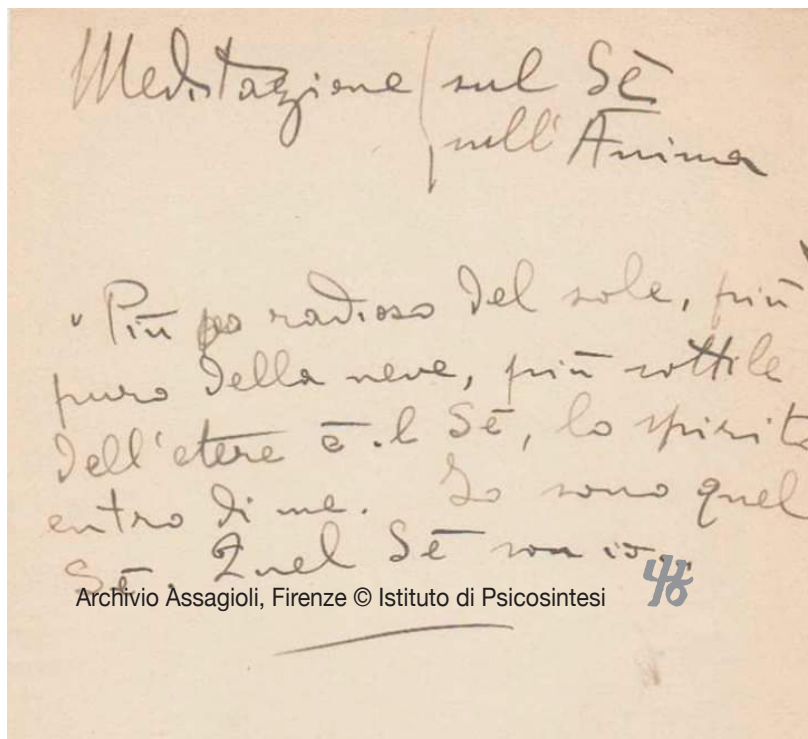 Meditazione sul Sè
sull'Anima
"Più radioso del sole, più
puro della neve, più sottile
dell'etere è il Sè, lo spirito
entro di me. Io sono quel
Sè. Quel Sè son io."
Archivio Assagioli, Firenze © Istituto di Psicosintesi